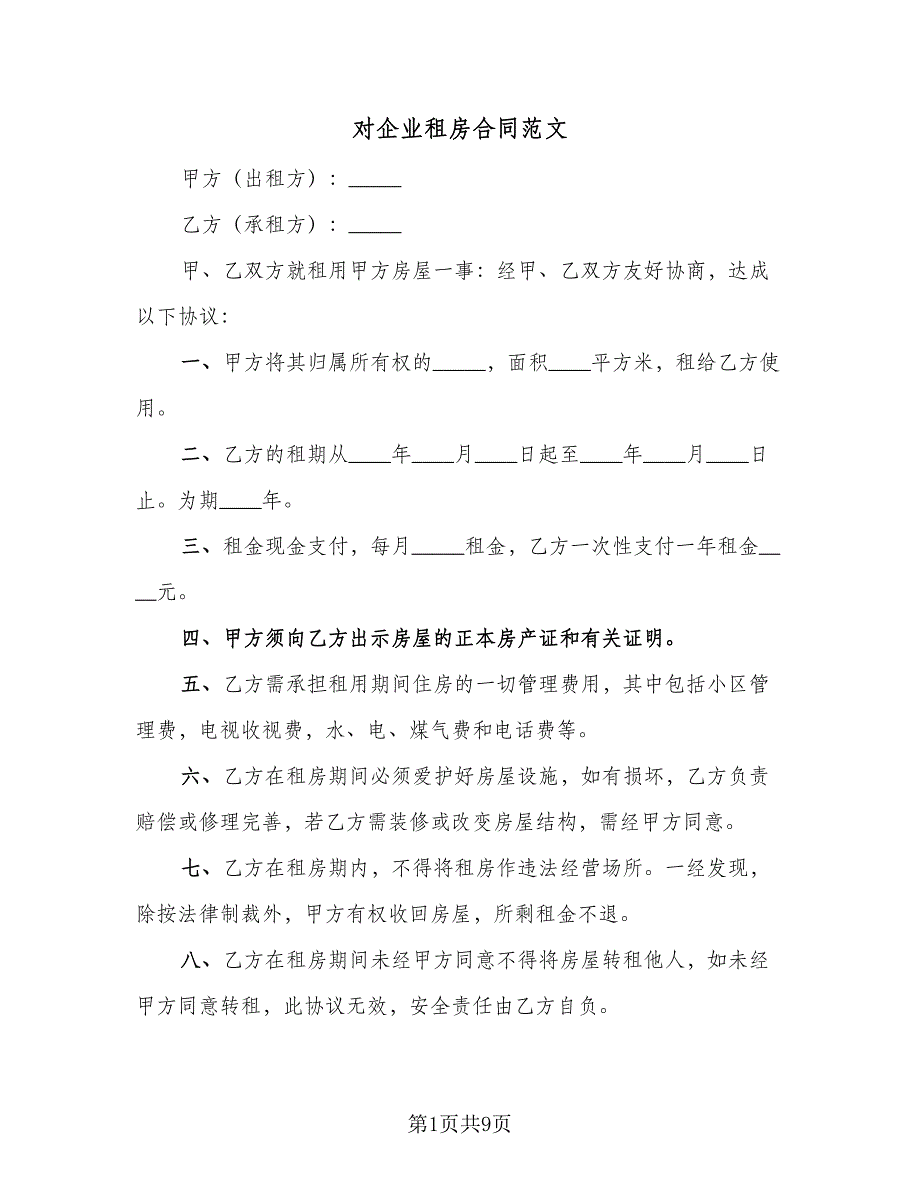 对企业租房合同范文
甲方（出租方）：_____
乙方（承租方）：_____
甲、乙双方就租用甲方房屋一事：经甲、乙双方友好协商，达成
以下协议：
一、甲方将其归属所有权的_____，面积____平方米，租给乙方使
用。
二、乙方的租期从____年____月____日起至____年____月____日
止。为期____年。
三、租金现金支付，每月_____租金，乙方一次性支付一年租金__
__元。
四、甲方须向乙方出示房屋的正本房产证和有关证明。
五、乙方需承担租用期间住房的一切管理费用，其中包括小区管
理费，电视收视费，水、电、煤气费和电话费等。
六、乙方在租房期间必须爱护好房屋设施，如有损坏，乙方负责
赔偿或修理完善，若乙方需装修或改变房屋结构，需经甲方同意。
七、乙方在租房期内，不得将租房作违法经营场所。一经发现，
除按法律制裁外，甲方有权收回房屋，所剩租金不退。
八、乙方在租房期间未经甲方同意不得将房屋转租他人，如未经
甲方同意转租，此协议无效，安全责任由乙方自负。
第1页共9页